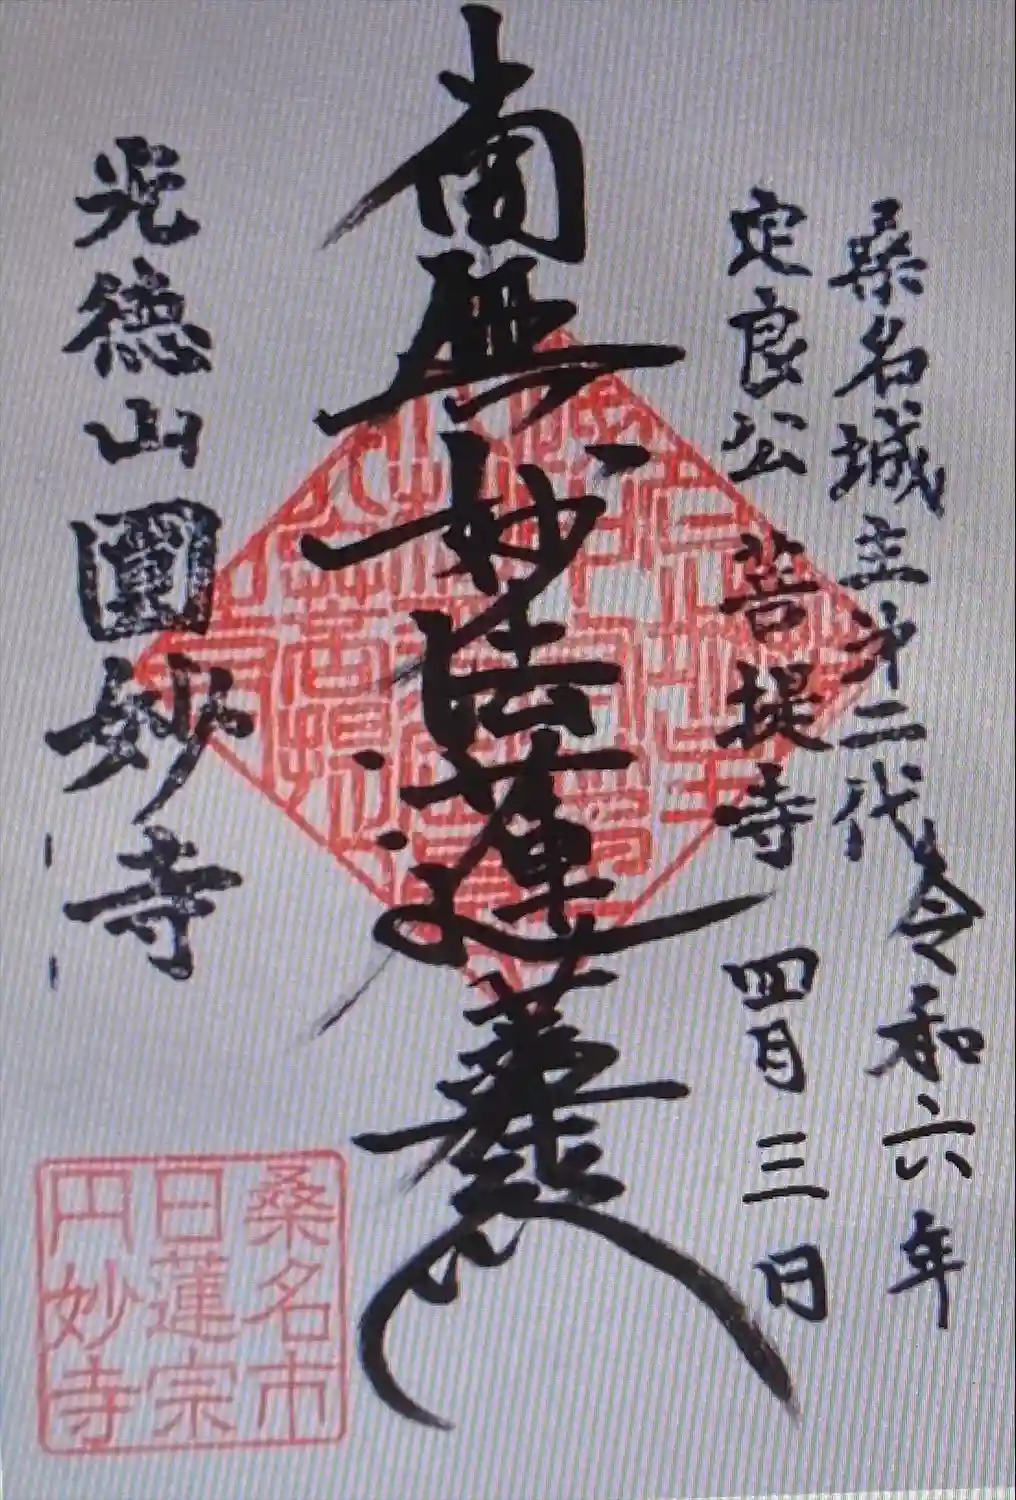 桑名城主第二代
定良公 菩提寺
令和六年
四月三日
南無妙法蓮華経
光徳山
圓妙寺
桑名市
日蓮宗
円妙寺